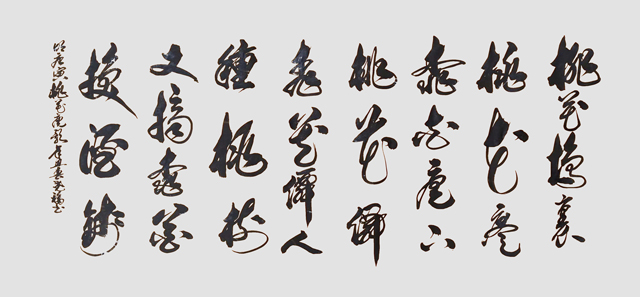 桃花塢裏
桃花庵
桃花庵下
桃花僊
桃花僊人
種桃樹
又摘桃花
換酒錢
明唐寅桃花庵歌